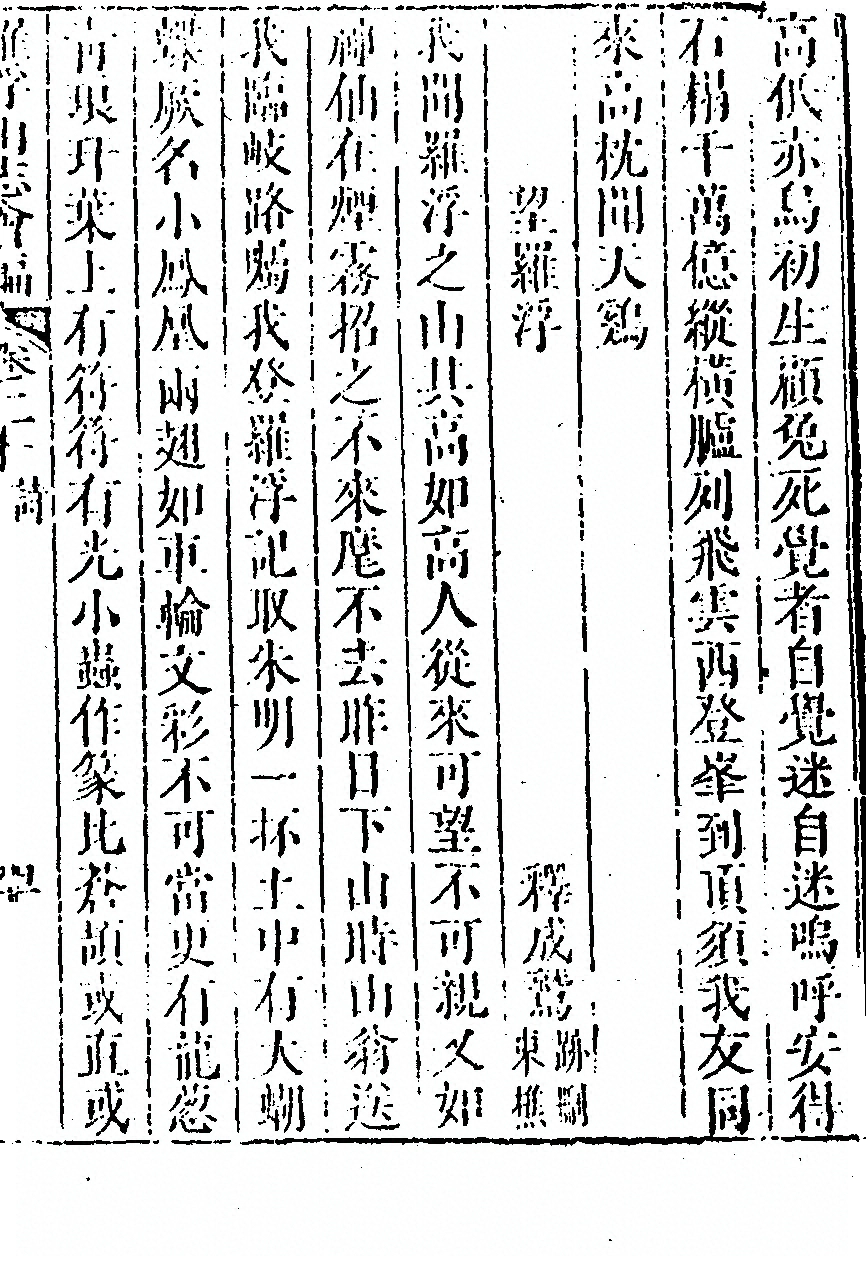 高低赤烏初生顧兔死覺者自覺迷自迷嗚呼安得
石榻千萬億縱橫臚列飛雲西登峯到頂須我友同
來高枕聞天鷄
望羅浮 釋成鷲 跡刪 東樵
我聞羅浮之山其高如高人從來可望不可親又如
神仙在煙霧招之不來麾不去昨日下山時山翁送
我臨岐路囑我登羅浮記取朱明一抔土中有大蝴
蝶厥名小鳳凰兩翅如車輪文彩不可當更有龍葱
青琅玕葉上有符符有光小蟲作篆比蒼頡或直或
羅浮山志會編 卷二十 詩